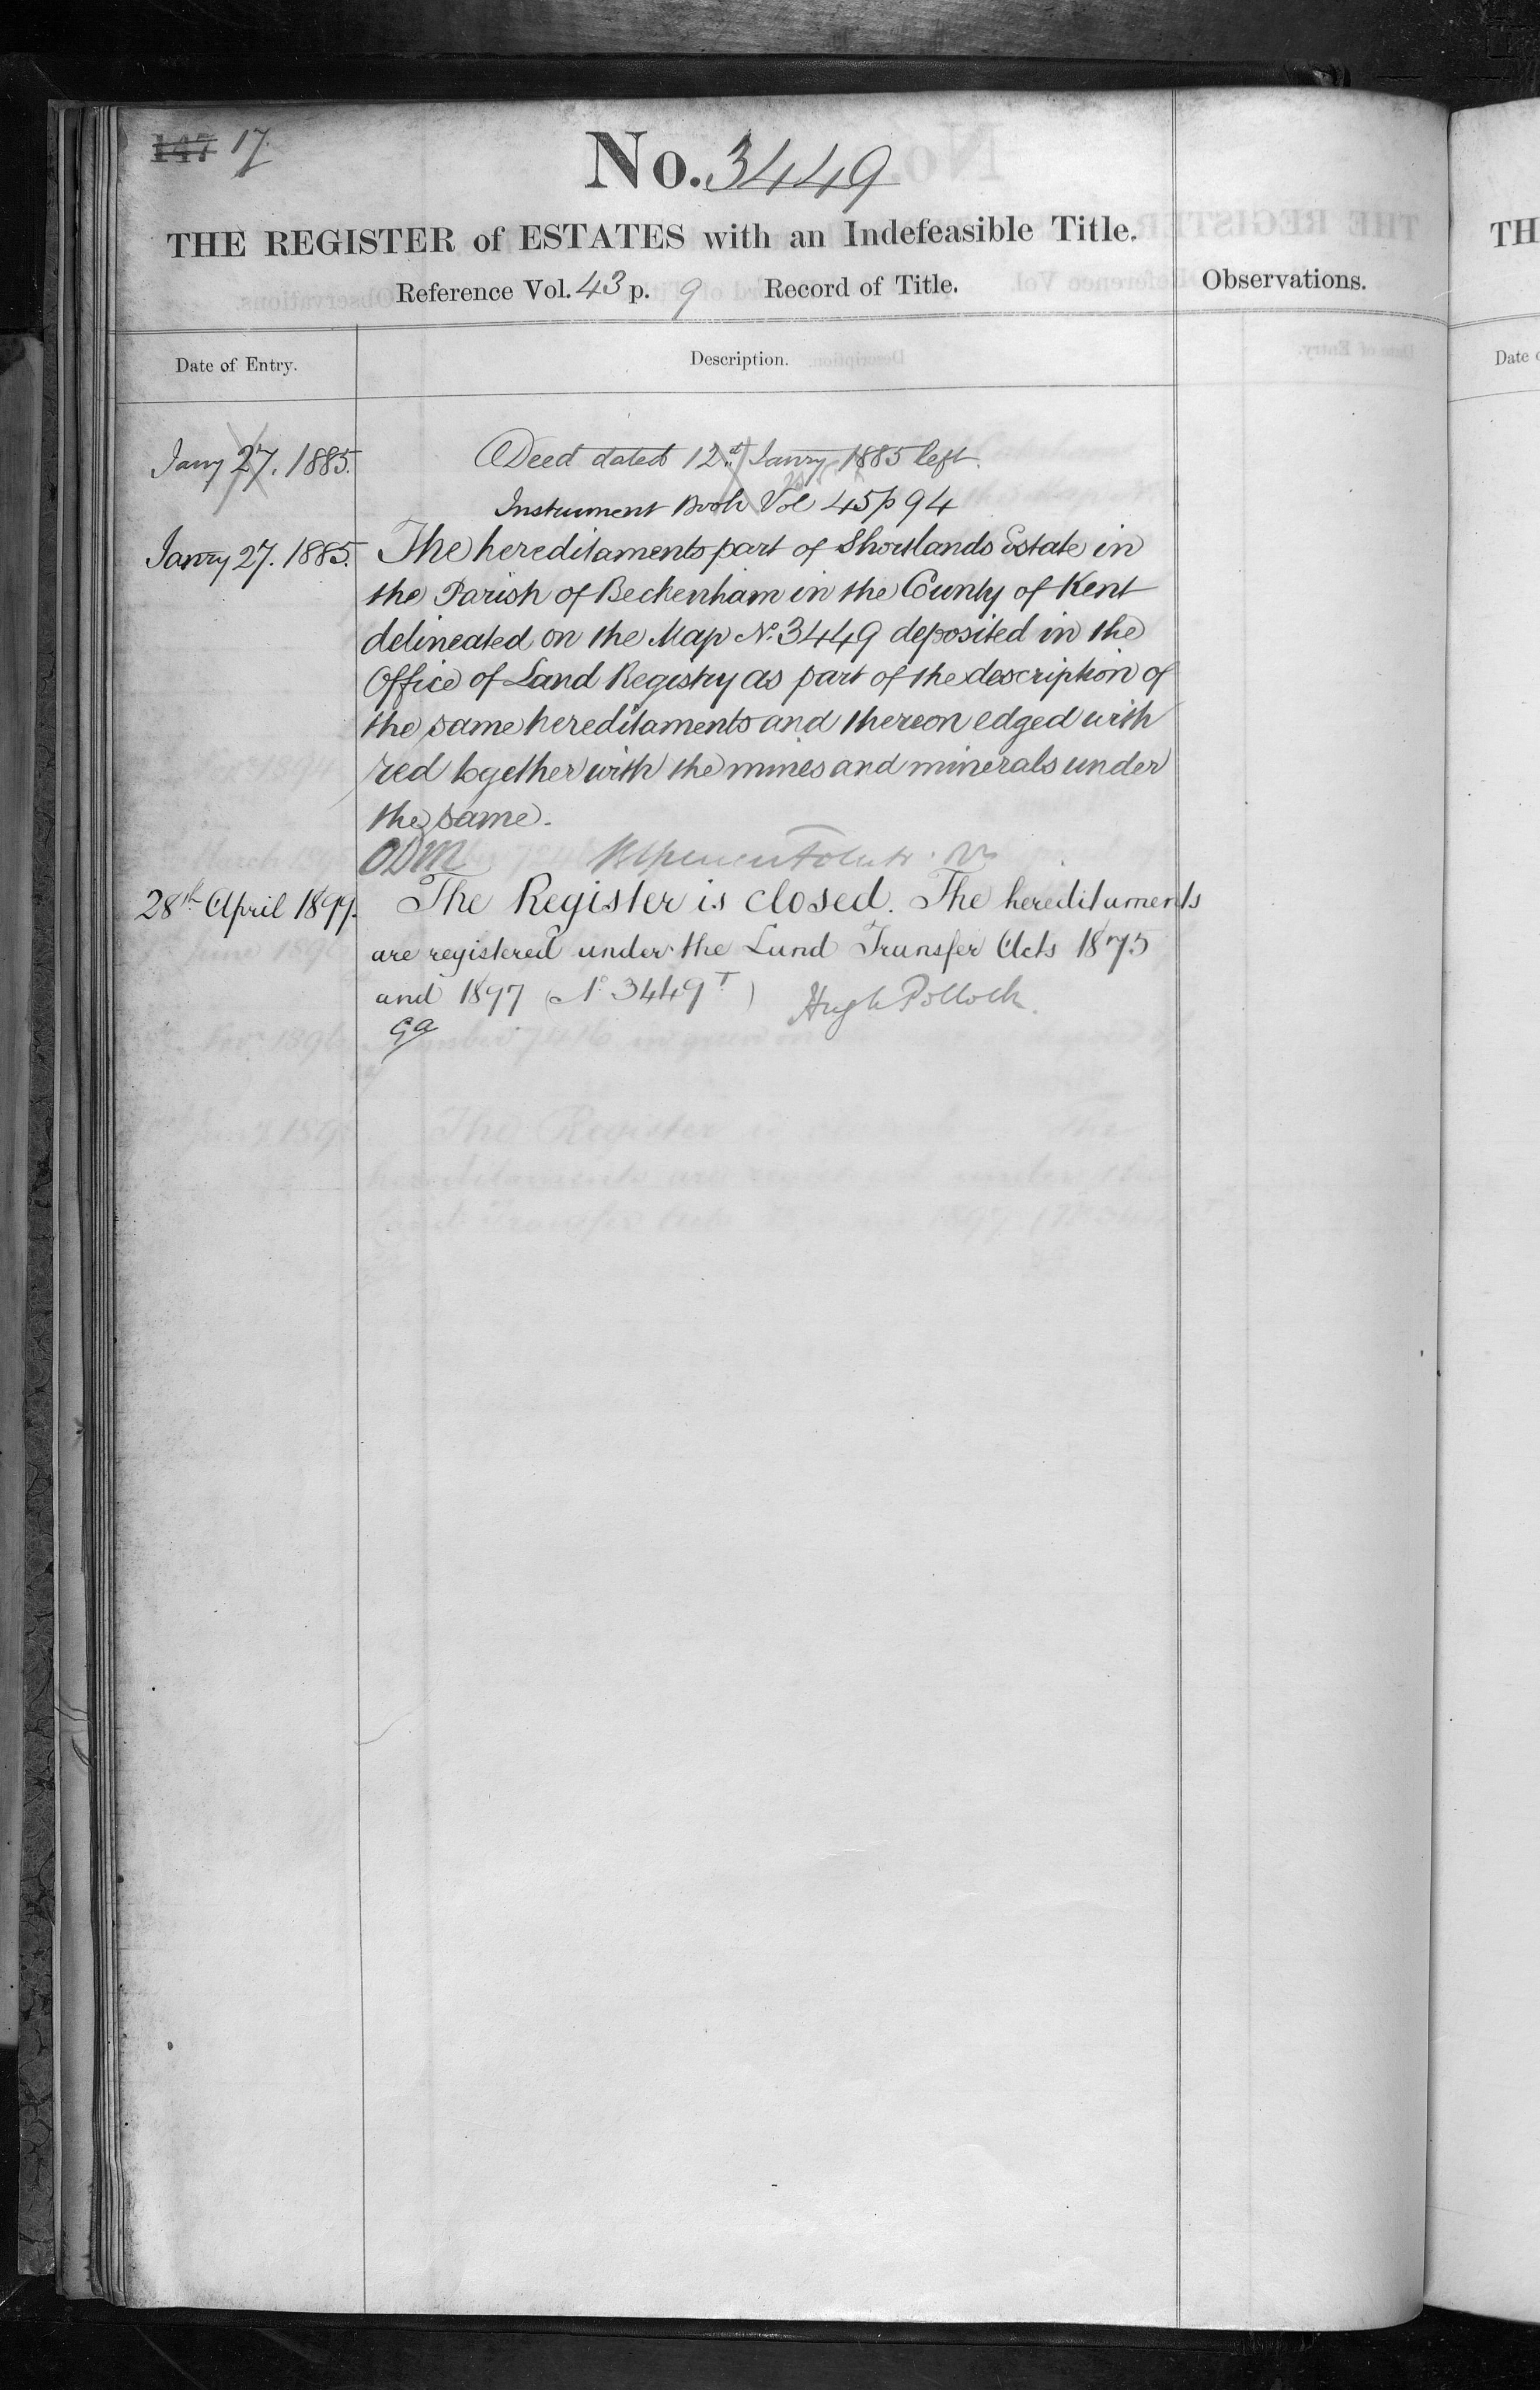 147 17.
No. 3449
THE REGISTER of ESTATES with an Indefeasible Title.
Reference Vol. 43 p. 9 Record of Title.
Observations.
Date of Entry.
Description.
Jany 27. 1885.
Deed dated 12th Janry 1885 left.
Instrument Book Vol 45 p 94
Janry 27. 1885.
The hereditaments part of Shortlands Estate in
the Parish of Beckenham in the County of Kent
delineated on the Map No. 3449 deposited in the
Office of Land Registry as part of the description of
the same hereditaments and thereon edged with
red together with the mines and minerals under
the same.
ODM
28th April 1899.
The Register is closed. The hereditaments
are registered under the Land Transfer Acts 1875
and 1897 (No 3449T)
Hugh Pollock.
TH
Date